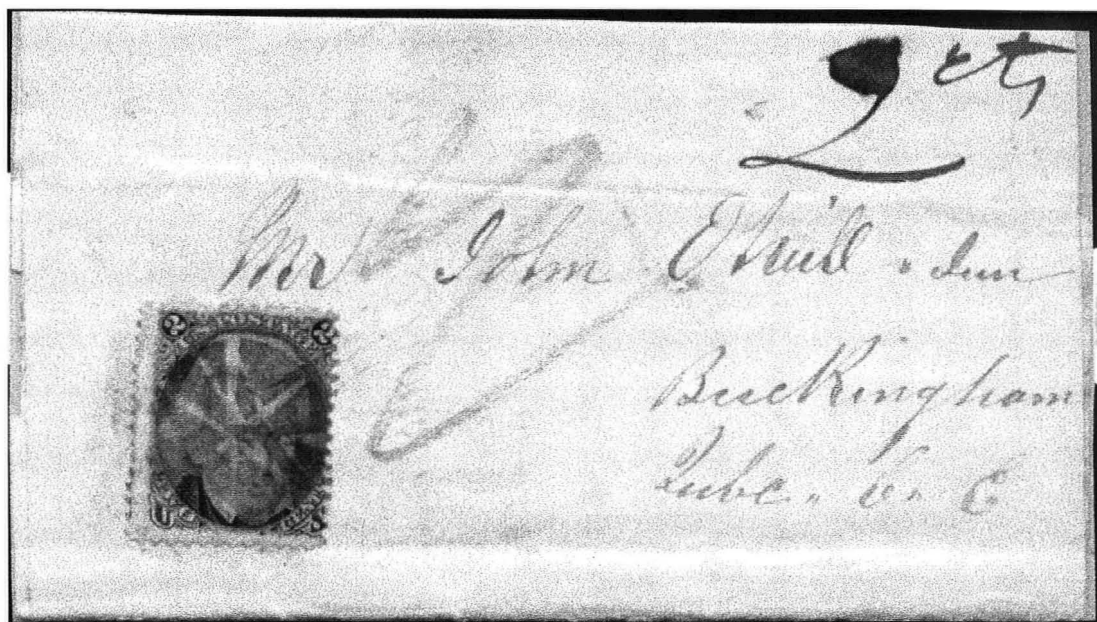 2 cts
Mr John O'Neill Jun
Buckingham
Qubc. C. E
2 POSTAGE 2
U S